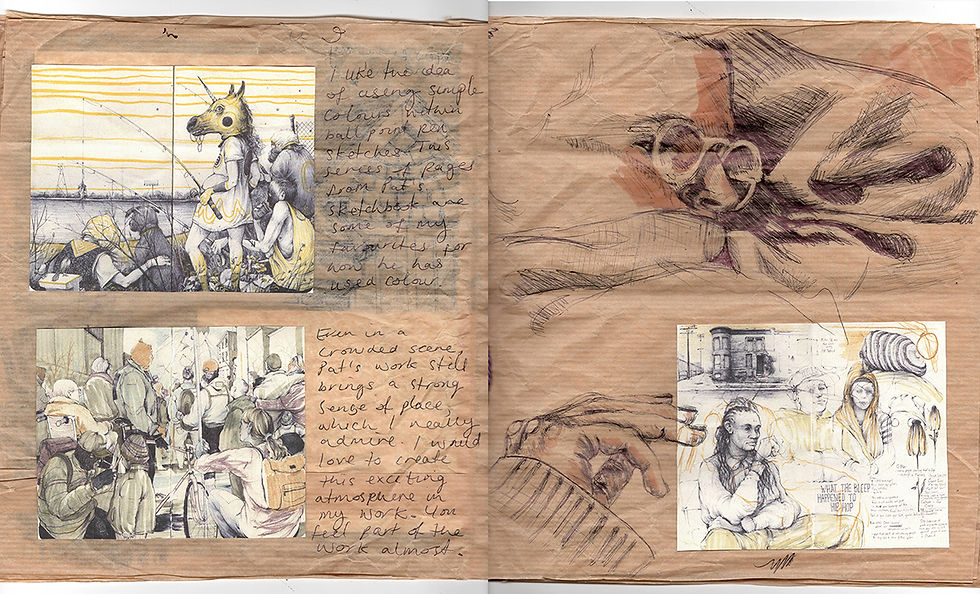 I like the idea
of using simple
colours within
ball point pen
sketches. This
series of pages
from Pat's
sketchbook are
some of my
favourites for
how he has
used colour.
Even in a
crowded scene,
Pat's work still
brings a strong
sense of place,
which I really
admire. I would
love to create
this exciting
atmosphere in
my work. You
feel part of the
work almost.
WHAT THE BLEEP
HAPPENED TO
HIP HOP